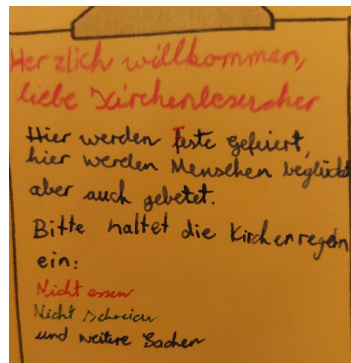 Herzlich willkommen,
liebe Kirchenbesucher
Hier werden Feste gefeiert,
hier werden Menschen beglückt
aber auch gebetet.
Bitte haltet die Kirchenregeln
ein:
Nicht essen
Nicht schreien
und weitere Sachen